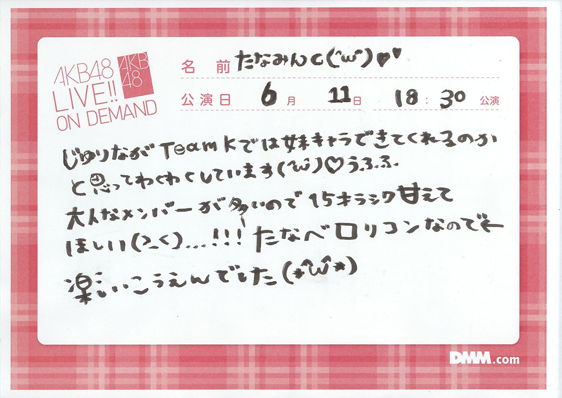 AKB48
LIVE!!
ON DEMAND
AKB
48
名 前 たなみんc(´ω`)♥♥
公演日 6月 11日 18:30 公演
じゅりながTeamKでは妹キャラできてくれるのか
と思ってわくわくしています(´ω`)♡うふふ
大人なメンバーが多いので15才らしく甘えて
ほしい(>_<)...!!! たなべロリコンなのでへ
楽しいこうえんでした(*´ω`*)
DMM.com